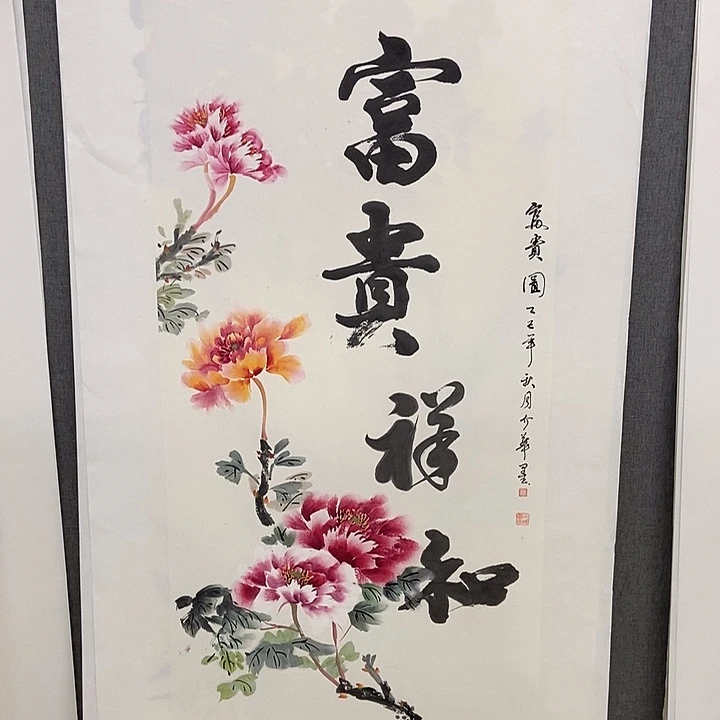 富貴祥和
富貴圖 乙巳年秋月介華墨